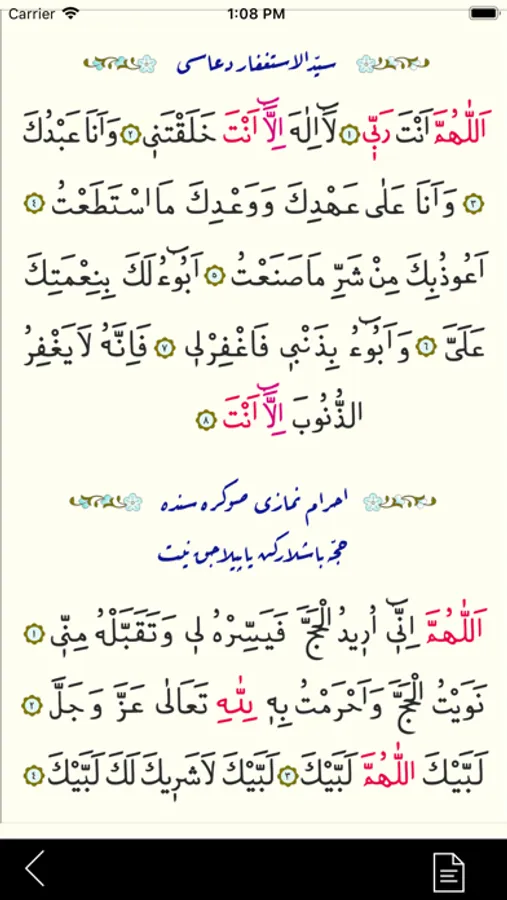 Carrier 1:08 PM
سيّد الاستغفار دعاسى
اَللّٰهُمَّ اَنْتَ رَبِّي ١ لَٓا اِلٰهَ اِلَّٓا اَنْتَ خَلَقْتَنٖي ٢ وَاَنَا عَبْدُكَ
٣ وَاَنَا عَلٰى عَهْدِكَ وَوَعْدِكَ مَا اسْتَطَعْتُ ٤
اَعُوذُ بِكَ مِنْ شَرِّ مَا صَنَعْتُ ٥ اَبُٓوءُ لَكَ بِنِعْمَتِكَ
عَلَيَّ ٦ وَاَبُٓوءُ بِذَنْبٖي فَاغْفِرْلٖي ٧ فَاِنَّهُ لَا يَغْفِرُ
الذُّنُوبَ اِلَّٓا اَنْتَ ٨
احرام نمازى صوكره سنده
حجّه باشلاركن ياپيلاجق نيت
اَللّٰهُمَّ اِنّٖٓي اُرٖيدُ الْحَجَّ فَيَسِّرْهُ لٖي وَتَقَبَّلْهُ مِنّٖي ١
نَوَيْتُ الْحَجَّ وَاَحْرَمْتُ بِهٖ لِلّٰهِ تَعَالٰى عَزَّ وَجَلَّ ٢
لَبَّيْكَ اَللّٰهُمَّ لَبَّيْكَ ٣ لَبَّيْكَ لَا شَرٖيكَ لَكَ لَبَّيْكَ ٤